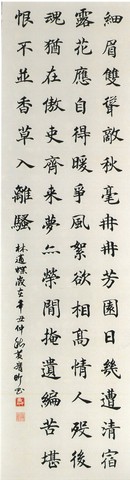 細眉雙聳敵秋毫冉冉芳園日幾遭清宿
露花應自得暖爭風絮欲相高情人歿後
魂猶在傲吏齊來夢亦榮閒掩遺編苦堪
恨不並香草入離騷
林逋蝶歲在辛丑仲秋黃昕書